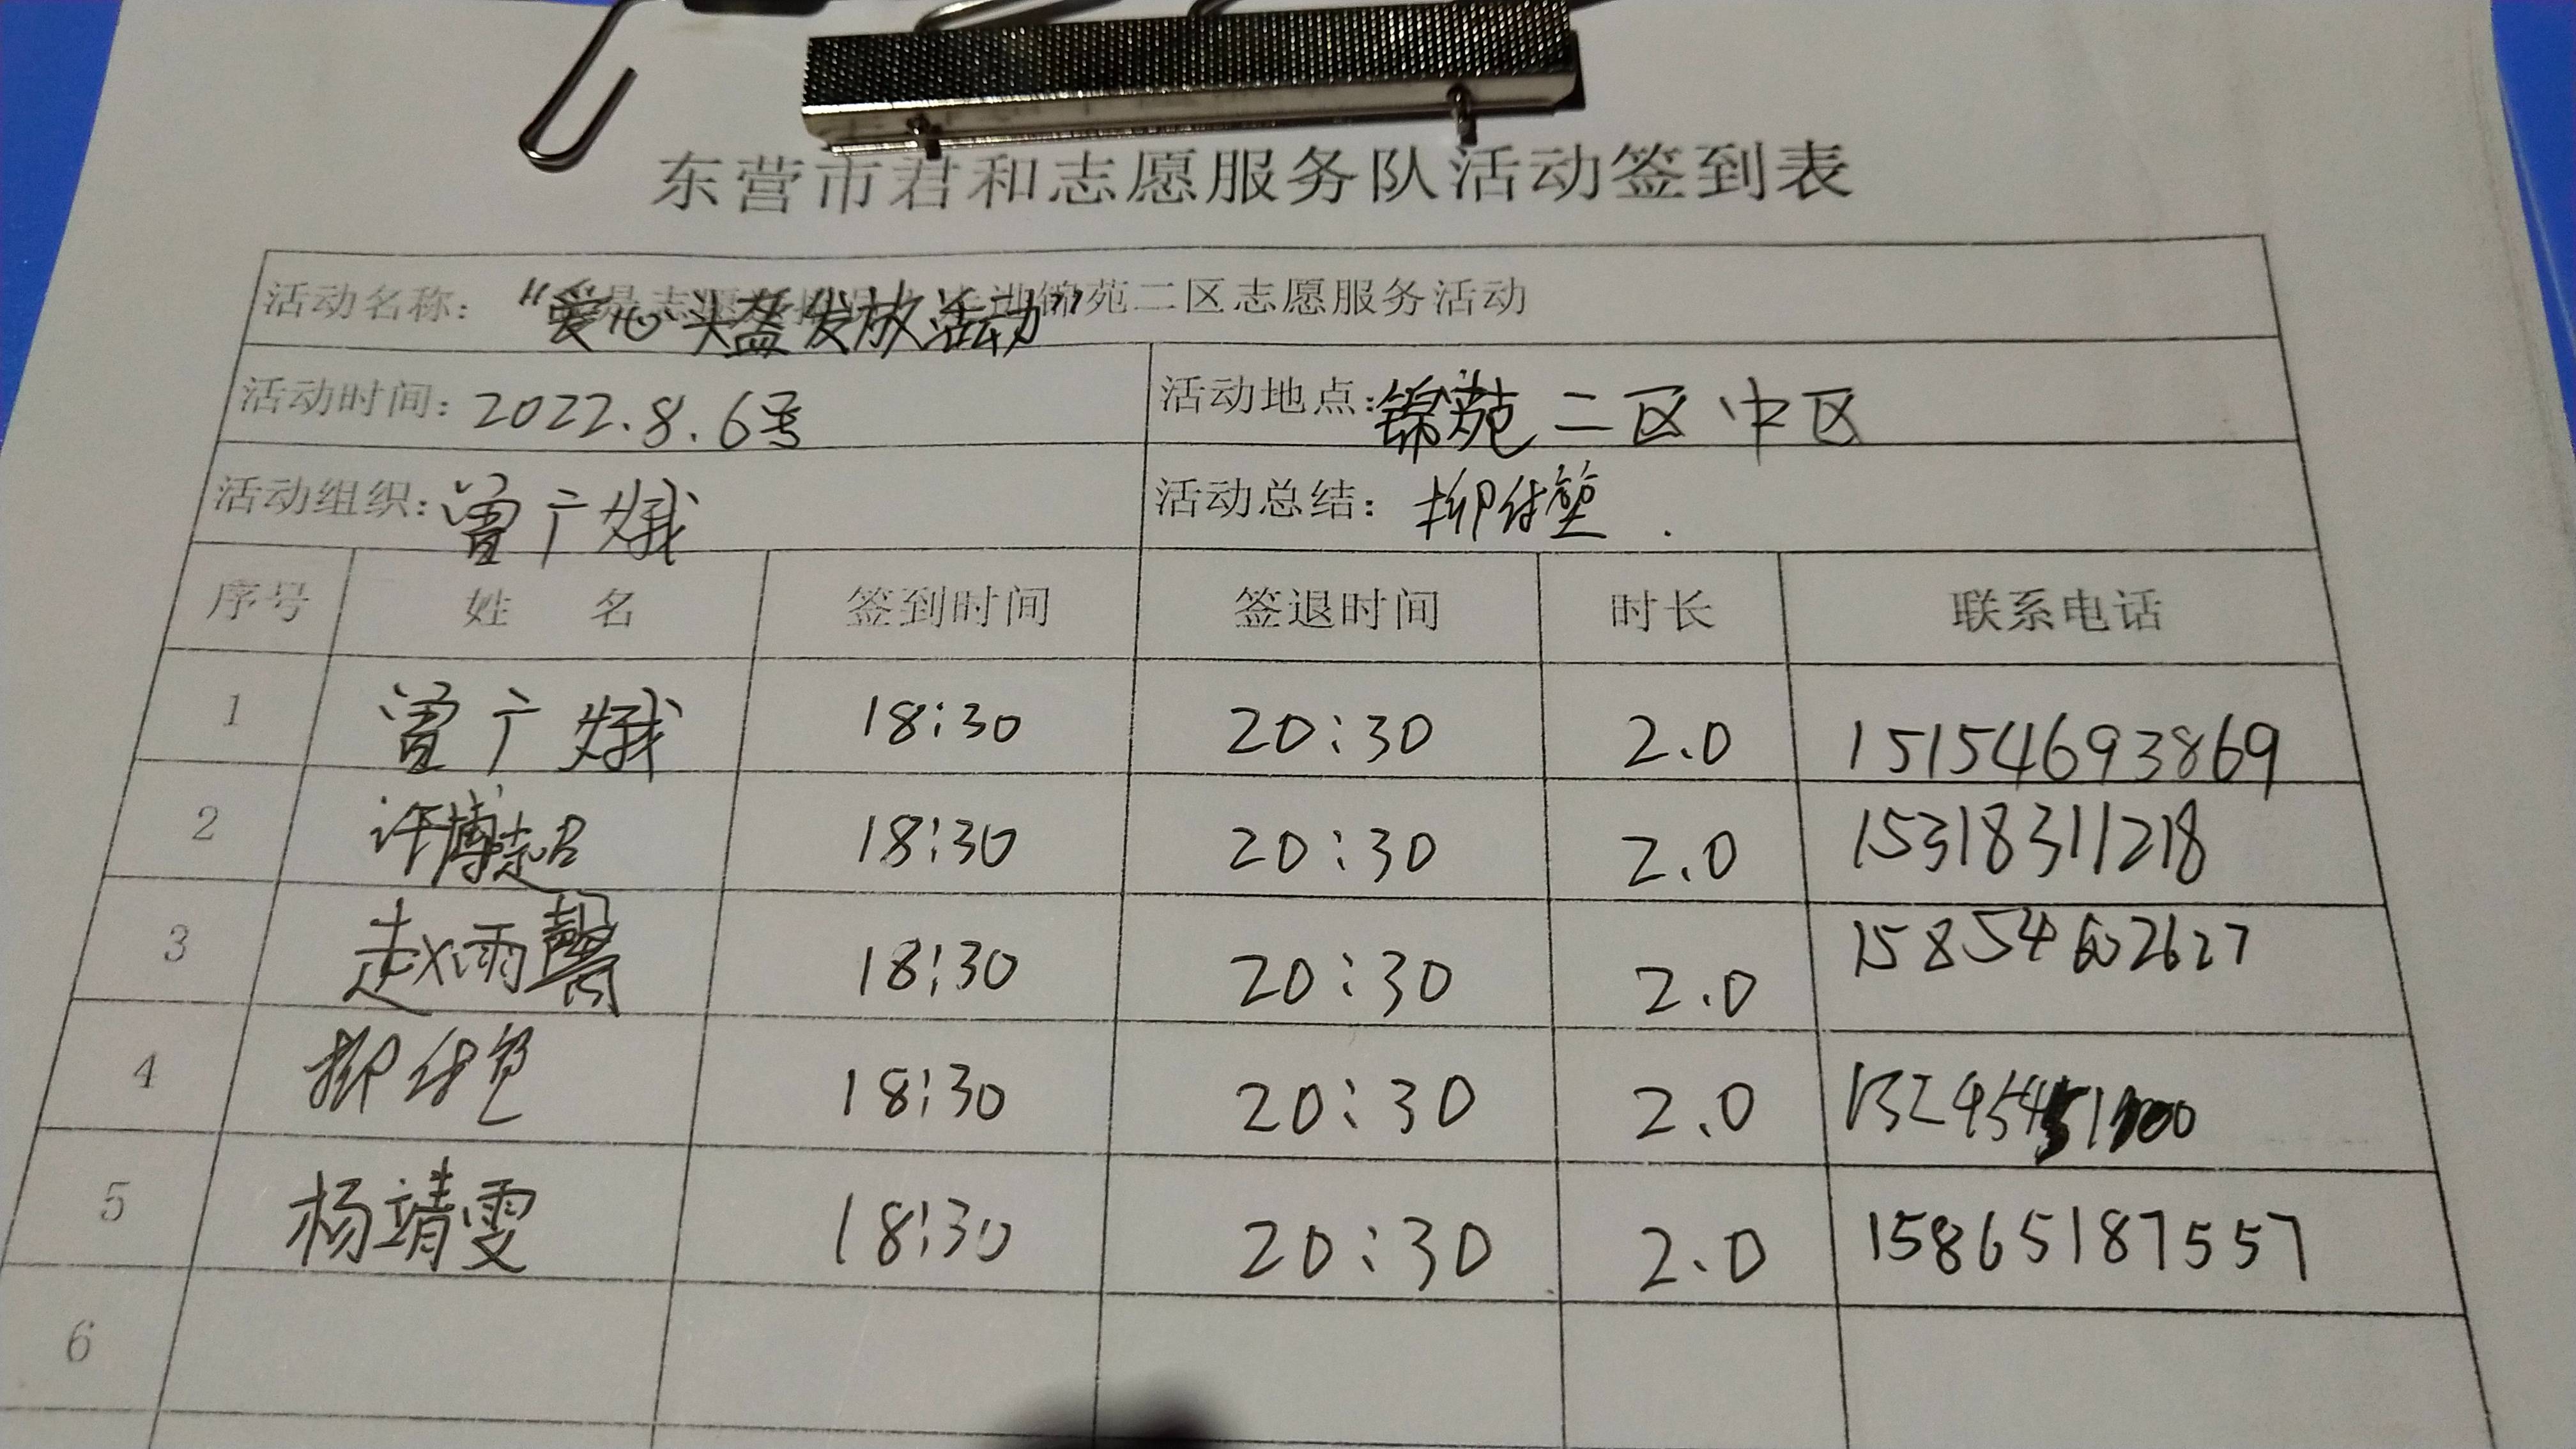 东营市君和志愿服务队活动签到表
活动名称：“爱心头盔发放活动” 锦苑二区志愿服务活动
活动时间：2022.8.6号 活动地点：锦苑二区中区
活动组织：曾广娥 活动总结：柳
序号 姓 名 签到时间 签退时间 时长 联系电话
1 曾广娥 18:30 20:30 2.0 15154693869
2 许博超 18:30 20:30 2.0 15318311218
3 赵雨馨 18:30 20:30 2.0 15854602627
4 柳 18:30 20:30 2.0
5 杨靖雯 18:30 20:30 2.0 15865187557
6